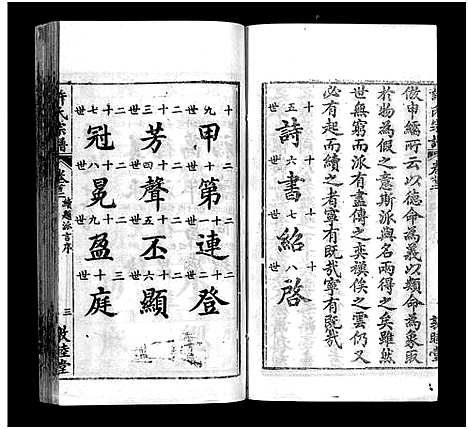 許氏宗譜 卷首 敦睦堂
倣申繻所云以德命為義以類命為象取
於物為假之意斯派與名兩得之矣雖然
世無窮而派有盡傳之奕禩俟之雲仍又
必有起而續之者寧有既哉寧有既哉
十五世 詩 十六世 書 十七世 紹 十八世 啓
十九世 甲 二十世 第 二十一世 連 二十二世 登
二十三世 芳 二十四世 聲 二十五世 丕 二十六世 顯
二十七世 冠 二十八世 冕 二十九世 盈 三十世 庭
許氏宗譜 卷首 派言序 三 敦睦堂